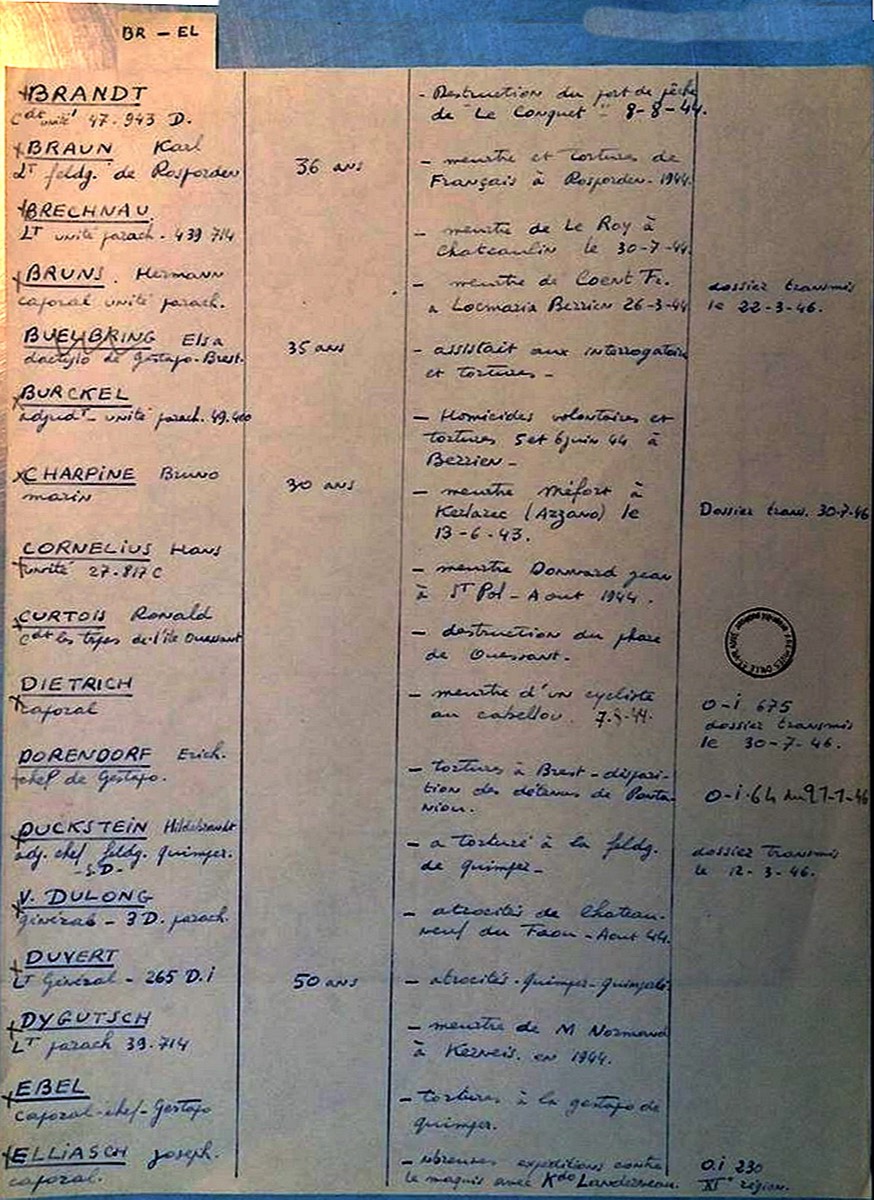 BR - EL
BRANDT
Cdt unité 47.943 D.
- Destruction du port de pêche
de "Le Conquet" 8-8-44.
BRAUN Karl
LT feldg. de Rosporden
36 ans
- meurtre et tortures de
Français à Rosporden. 1944.
BRECHNAU
LT unité parach. 439 714
- meurtre de Le Roy à
Chateaulin le 30-7-44.
BRUNS. Hermann
caporal unité parach.
- meurtre de Coent Fr.
a Locmaria Berrien 26-3-44
dossier transmis
le 22-3-46.
BUEYBRING Elsa
dactylo de Gestapo-Brest.
35 ans
- assistait aux interrogatoire
et tortures -
BURCKEL
adjudt - unité parach. 49.400
- Homicides volontaires et
tortures 5 et 6 juin 44 à
Berrien -
CHARPINE Bruno
marin
30 ans
- meurtre Méfort à
Kerlarec (Arzano) le
13-6-43.
Dossier trans. 30-7-46
CORNELIUS Hans
unité 27.817 C
- meurtre Donward Jean
à ST Pol - Aout 1944.
CURTOIS Ronald
Cdt les trpes de l'île Ouessant
- destruction du phare
de Ouessant.
DIETRICH
caporal
- meurtre d'un cycliste
au cabellou. 7-8-44.
O-i 675
dossier transmis
le 30-7-46.
DORENDORF Erich.
chef de Gestapo.
- tortures à Brest - dispari-
tion des détenus de Ponta-
niou.
O-i.64 du
DUCKSTEIN Hildebrandt
adj. chef feldg. Quimper.
-S.D-
- a torturé à la feldg.
de Quimper -
dossier transmis
le 12-3-46.
V. DULONG
général - 3 D. parach.
- atrocités de Chateau-
neuf du Faou - Aout 44.
DUVERT
LT Général - 265 D.i
50 ans
- atrocités - Quimper - Quimperlé
DYGUTSCH
LT parach 39.714
- meurtre de M Normand
à Kerveis. en 1944.
EBEL
caporal-chef - Gestapo
- tortures à la gestapo de
Quimper.
ELLIASCH Joseph.
caporal.
- nbreuses expéditions contre
le maquis avec Kdo Landerneau.
O.i 230
XIº région.